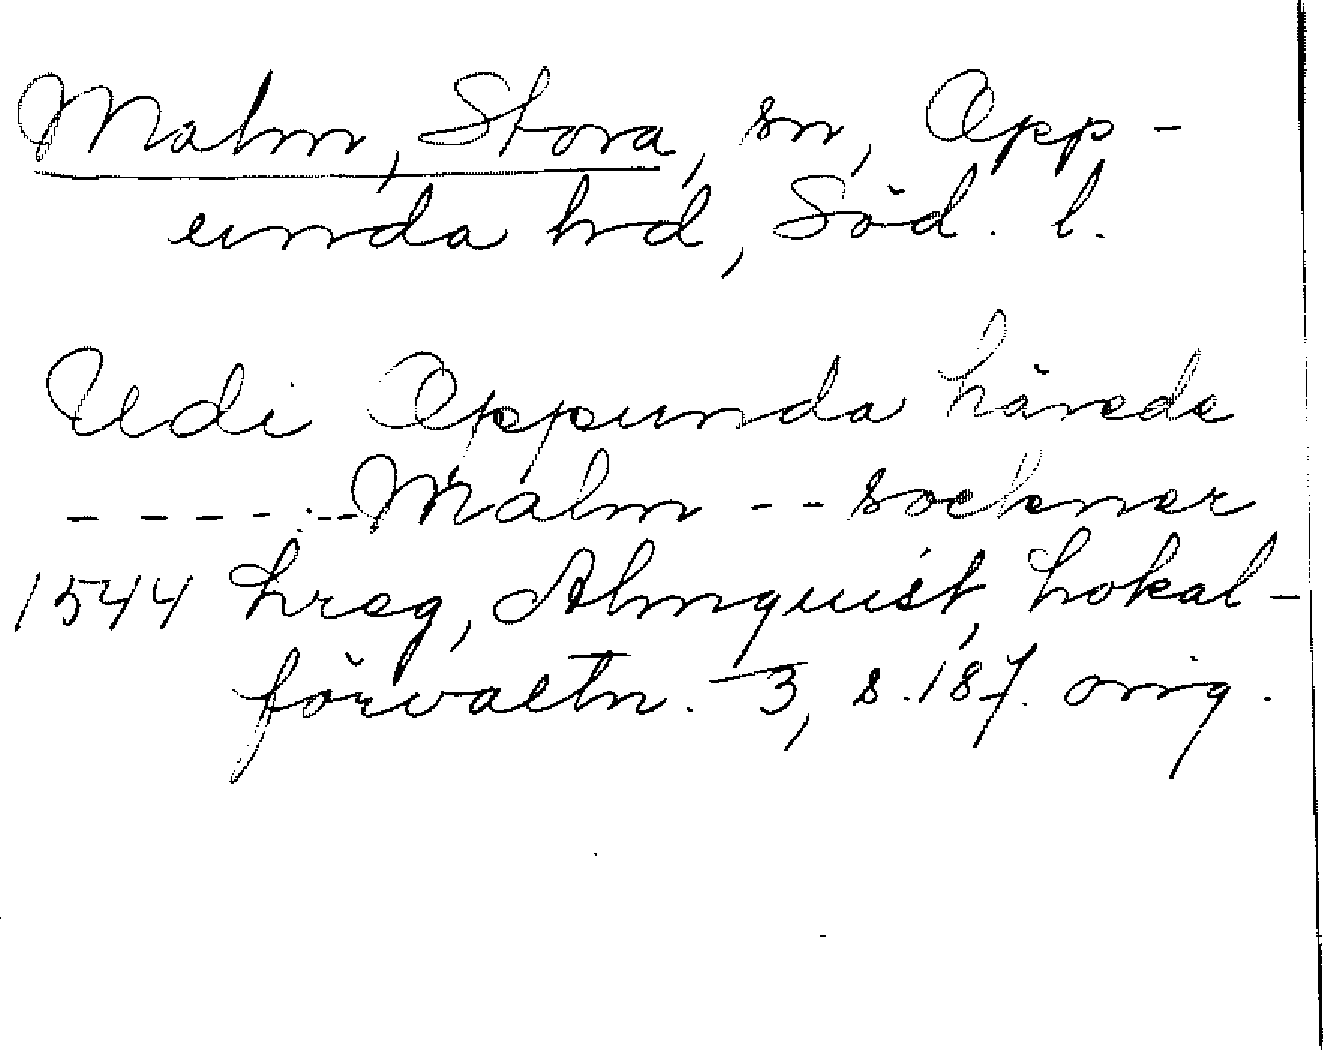 Malm, Stora, sn, Opp-
unda hd, Söd. l.
Udi Oppunda härede
- - - - - - Malm - - sockner
1544 Lreg, Almquist, Lokal-
förvaltn. 3, s. 187. orig.